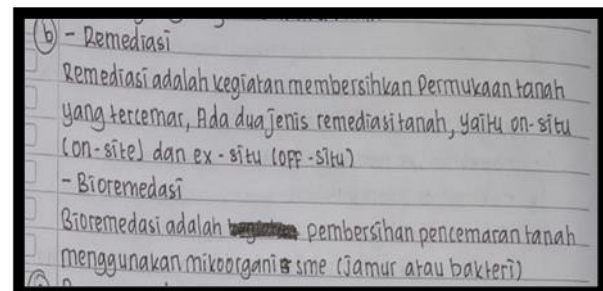 (b) - Remediasi
Remediasi adalah kegiatan membersihkan Permukaan tanah
yang tercemar, Ada dua jenis remediasi tanah, yaitu on-situ
(on-site) dan ex-situ (OFF-situ)
- Bioremedasi
Bioremedasi adalah pembersihan pencemaran tanah
menggunakan mikoorganisme (jamur atau bakteri)